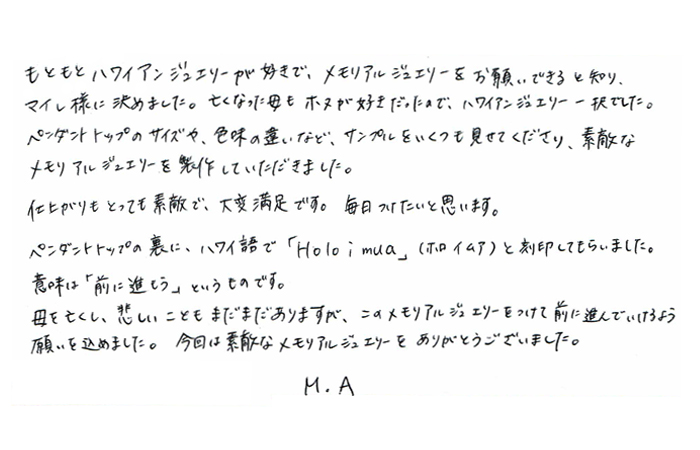 もともとハワイアンジュエリーが好きで、メモリアルジュエリーをお願いできると知り、
マイレ様に決めました。亡くなった母もホヌが好きだったので、ハワイアンジュエリー一択でした。
ペンダントトップのサイズや、色味の違いなど、サンプルをいくつも見せてくださり、素敵な
メモリアルジュエリーを製作していただきました。
仕上がりもとっても素敵で、大変満足です。毎日つけたいと思います。
ペンダントトップの裏に、ハワイ語で「Holo i mua」(ホロ イムア)と刻印してもらいました。
意味は「前に進もう」というものです。
母を亡くし、悲しいこともまだまだありますが、このメモリアルジュエリーをつけて前に進んでいけるよう
願いを込めました。今回は素敵なメモリアルジュエリーをありがとうございました。
M.A